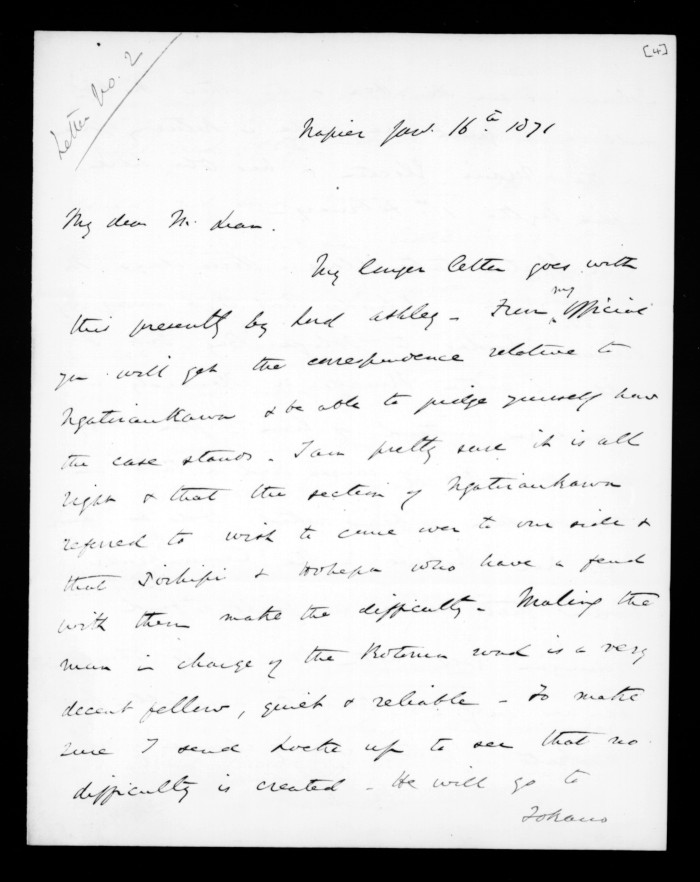 [4]
Letter No. 2
Napier Jan. 16th 1871
My dear McLean.
My longer letter goes with
this presently by Lord Ashley - From my official
you will get the correspondence relative to
Ngatiraukawa & be able to judge yourself how
the case stands - I am pretty sure it is all
right & that the section of Ngatiraukawa
referred to wish to come over to our side &
that & Hohepa who have a feud
with them make the difficulty - Maling the
man in charge of the road is a very
decent fellow, quiet & reliable - To make
sure I send Locke up to see that no
difficulty is created - He will go to